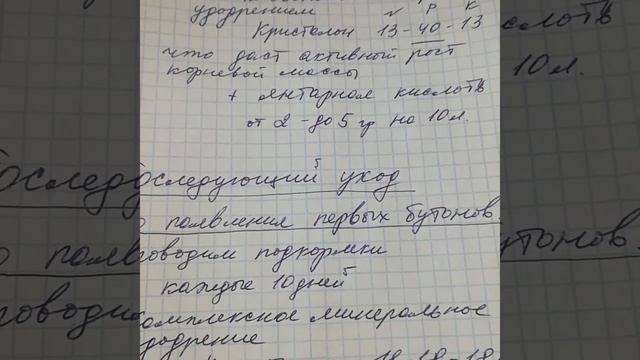 удодрением N P K
Кристалон 13-40-13
что даст активный рост
корневой массы
+ янтарная кислота
от 2-до 5 гр на 10л.
последующий уход
о появления первых бутонов
оводим подкормки
каждые 10 дней
омплексное минеральное
додрение
18-18-18